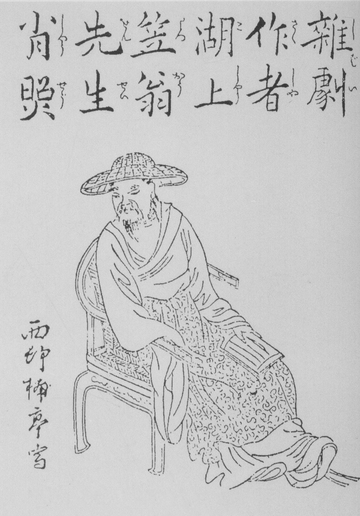 雜劇
作者
湖上
笠翁
先生
肖照
西邨楠亭写